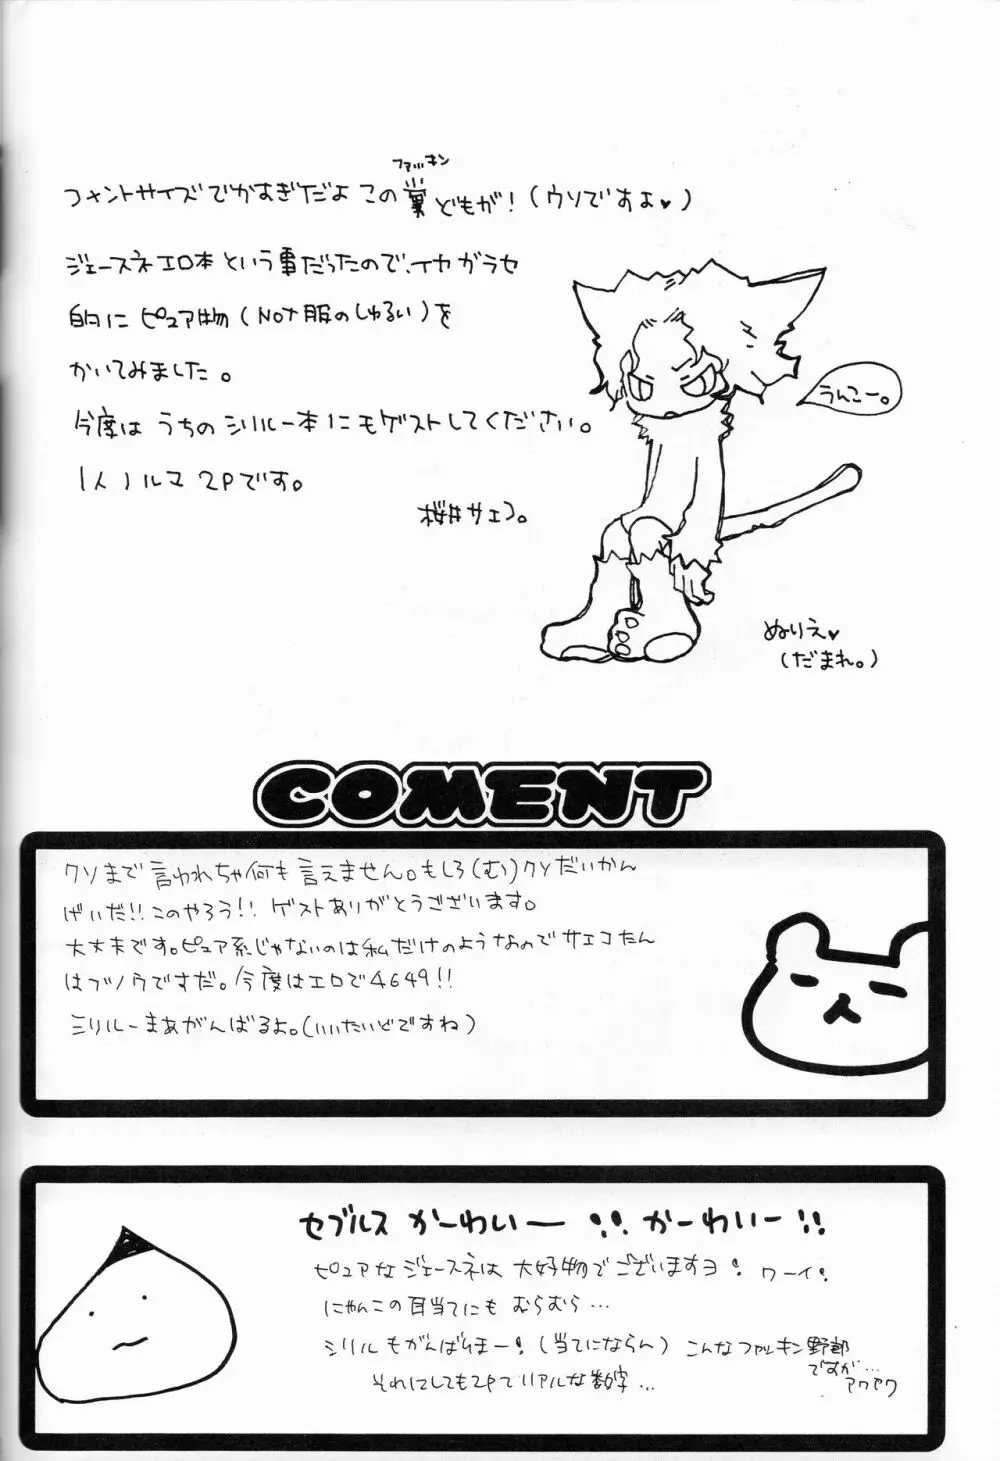 ファッキン
フォントサイズでかすぎだよ この 糞 どもが！（ウソですよ♥）
ジェースネエロ本という事だったので、イヤガラセ
的に ピュア物（Not服のしゅるい）を
かいてみました。
今度は うちの シリルー本にも ゲストしてください。
1人ノルマ 2Pです。
桜井サエコ。
うんこー。
ぬりえ♥
（だまれ。）
COMENT
クソまで言われちゃ何も言えません。もしろ（む）クソだいかん
げいだ!! このやろう!! ゲストありがとうございます。
大丈夫です。ピュア系じゃないのは私だけのようなのでサエコたん
はブノウですだ。今度はエロで4649!!
シリルーまあがんばるよ。（いいたいどですね）
セブルス かーわいー !! かーわいー !!
ピュアなジェースネは 大好物でございますヨ！ ワーイ！
にゃんこの耳当てにも むらむら…
シリルもがんばりまー！（当てにならん） こんなファッキン野郎
ですが…
アワアワ
それにしても2Pでリアルな数字…